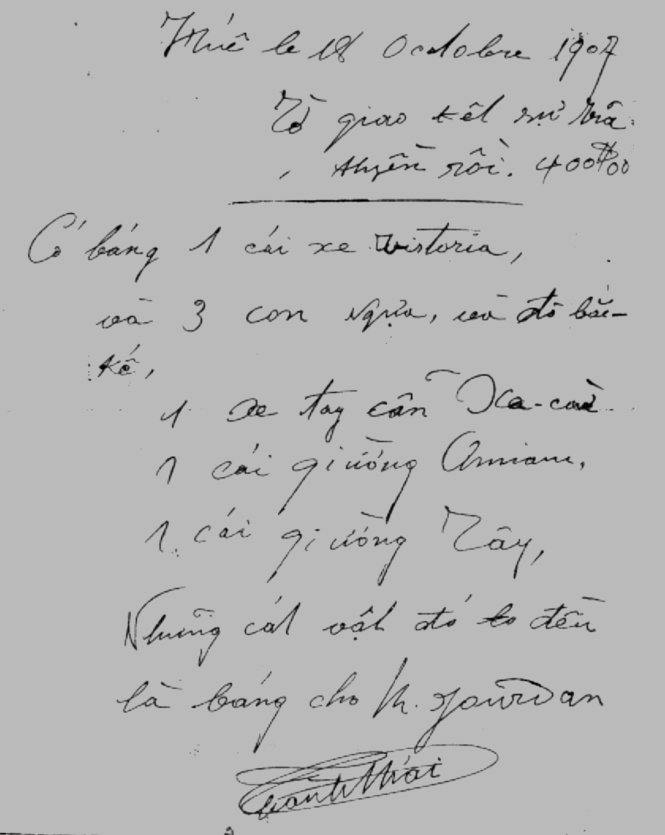 Huế le 18 Octobre 1907
Tờ giao kết sự trả
thuyền rồi. 400$00
Có báng 1 cái xe victoria,
và 3 con ngựa, và đồ bắc-
kế,
1 xe tay cần
1 cái giường Annam,
1 cái giường Tây,
Những cát vật đó đến
là báng cho M. Jourdan
Thành Thái